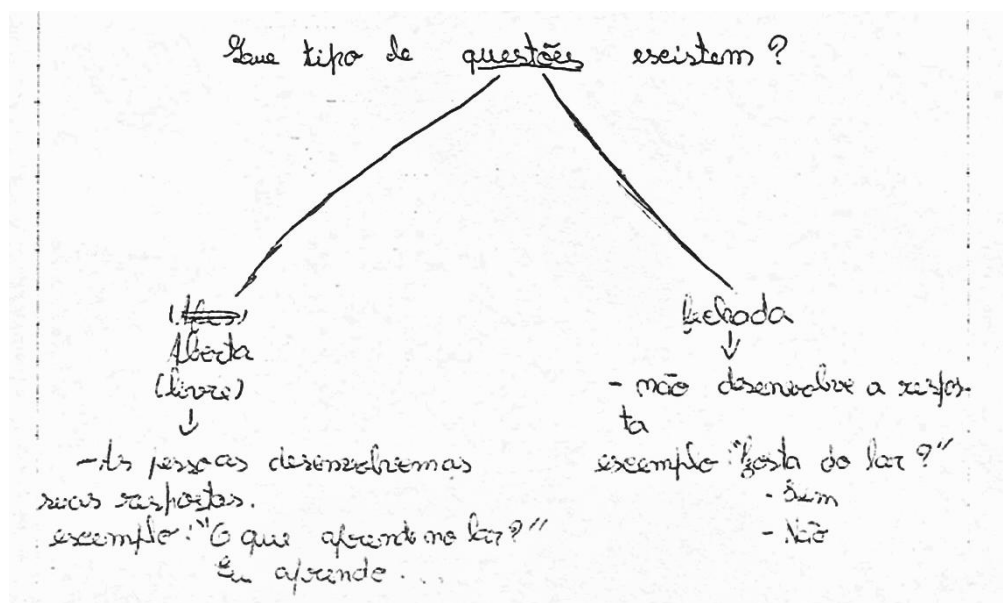 Que tipo de questões existem?
Aberta
(livre)
- As pessoas desenvolvem as
suas respostas.
exemplo: "O que aprende no lar?"
Eu aprendo...
fechada
- não desenvolve a respos-
ta
exemplo: "Gosta do lar?"
- Sim
- Não